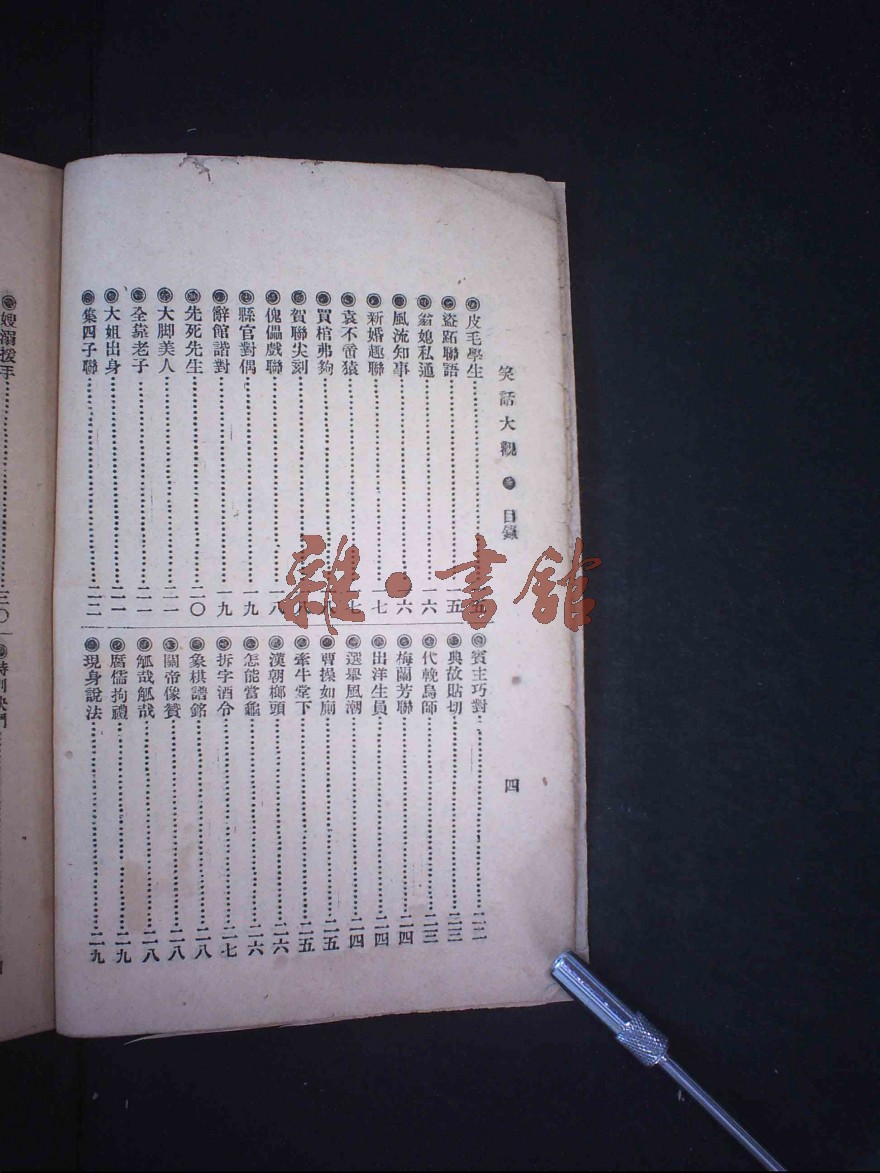 笑話大觀 ● 目錄 四
皮毛學生……五
盜跖聯語……一五
翁媳私通……一六
風流知事……一六
新婚趣聯……一七
袁不啻猿……七
買棺弗夠……八
賀聯尖刻……八
傀儡戲聯……一八
縣官對偶……一九
辭館諧對……一九
先死先生……二〇
大脚美人……二一
全靠老子……二一
大姐出身……二一
集四子聯……二二
賓主巧對……二二
典故貼切……二三
代輓鳥師……二三
梅蘭芳聯……二四
出洋生員……二四
選舉風潮……二四
曹操如廁……二五
牽牛堂下……二五
漢朝榔頭……二六
怎能當龜……二六
拆字酒令……二七
象棋譜銘……二八
關帝像贊……二八
觚哉觚哉……二八
腐儒拘禮……二九
現身說法……二九
嫂溺援手……三〇
雜·書館